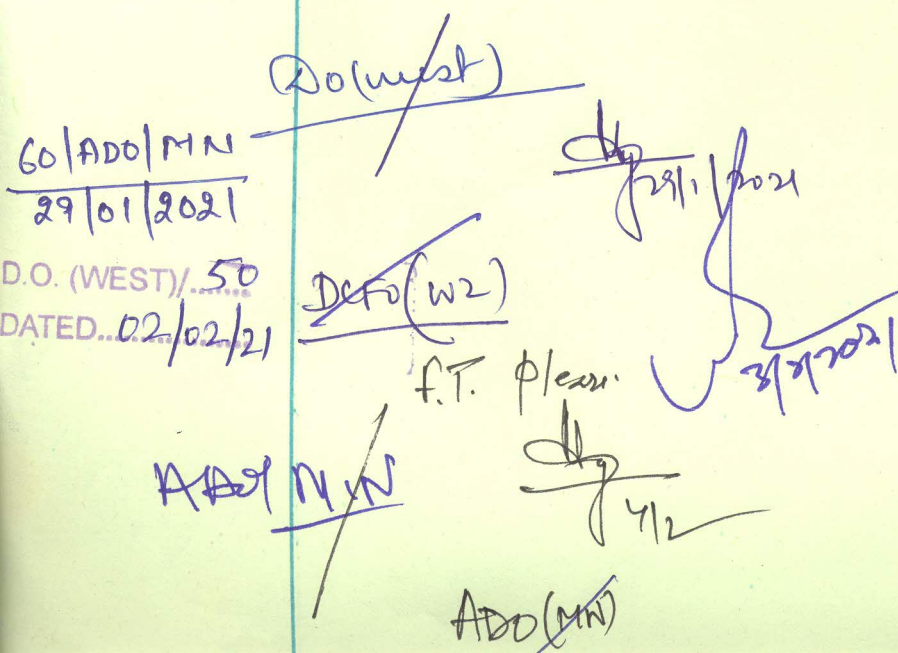 DO(west)
60/ADO/MN
29/01/2021
29/1/2021
D.O. (WEST)/.50
DATED...02/02/21
DCFO(W2)
3/2/2021
f.T. please.
ADO/MN
4/2
ADO(MN)